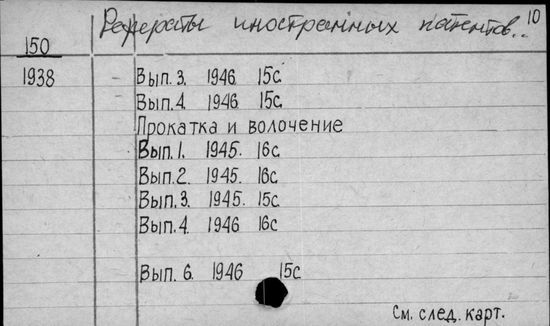 Рефераты иностранных патентов.. 10
150
1938 - Вып. 3. 1946 15с.
Вып. 4. 1946 15с.
Прокатка и волочение
Вып. 1. 1945. 16с.
Вып. 2. 1945. 16с.
Вып. 3. 1945. 15с.
Вып. 4. 1946 16с.
Вып. 6. 1946 15с.
См. след. карт.